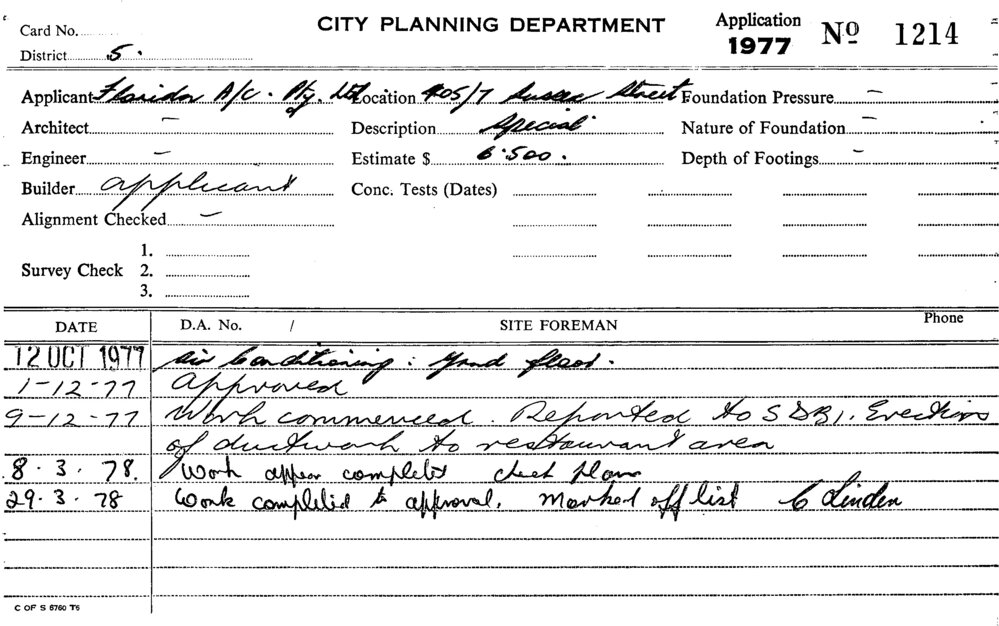 CITY PLANNING DEPARTMENT
Application
1977 No 1214
Card No.
District 5.
Applicant A/C. Pty. Ltd. Location 405/7 Sussex Street Foundation Pressure —
Architect — Description Special Nature of Foundation —
Engineer — Estimate $ 6.500. Depth of Footings —
Builder applicant Conc. Tests (Dates)
Alignment Checked —
Survey Check 1.
2.
3.
DATE D.A. No. / SITE FOREMAN Phone
12 OCT 1977 Air Conditioning: Grnd floor.
1-12-77 Approved
9-12-77 Work commenced. Reported to S.D.B.I. Erection
of ductwork to restaurant area
8.3.78. Work appear complete check plans
29.3.78 Work completed to approval. Marked off list C Linden
C OF S 6760 T6